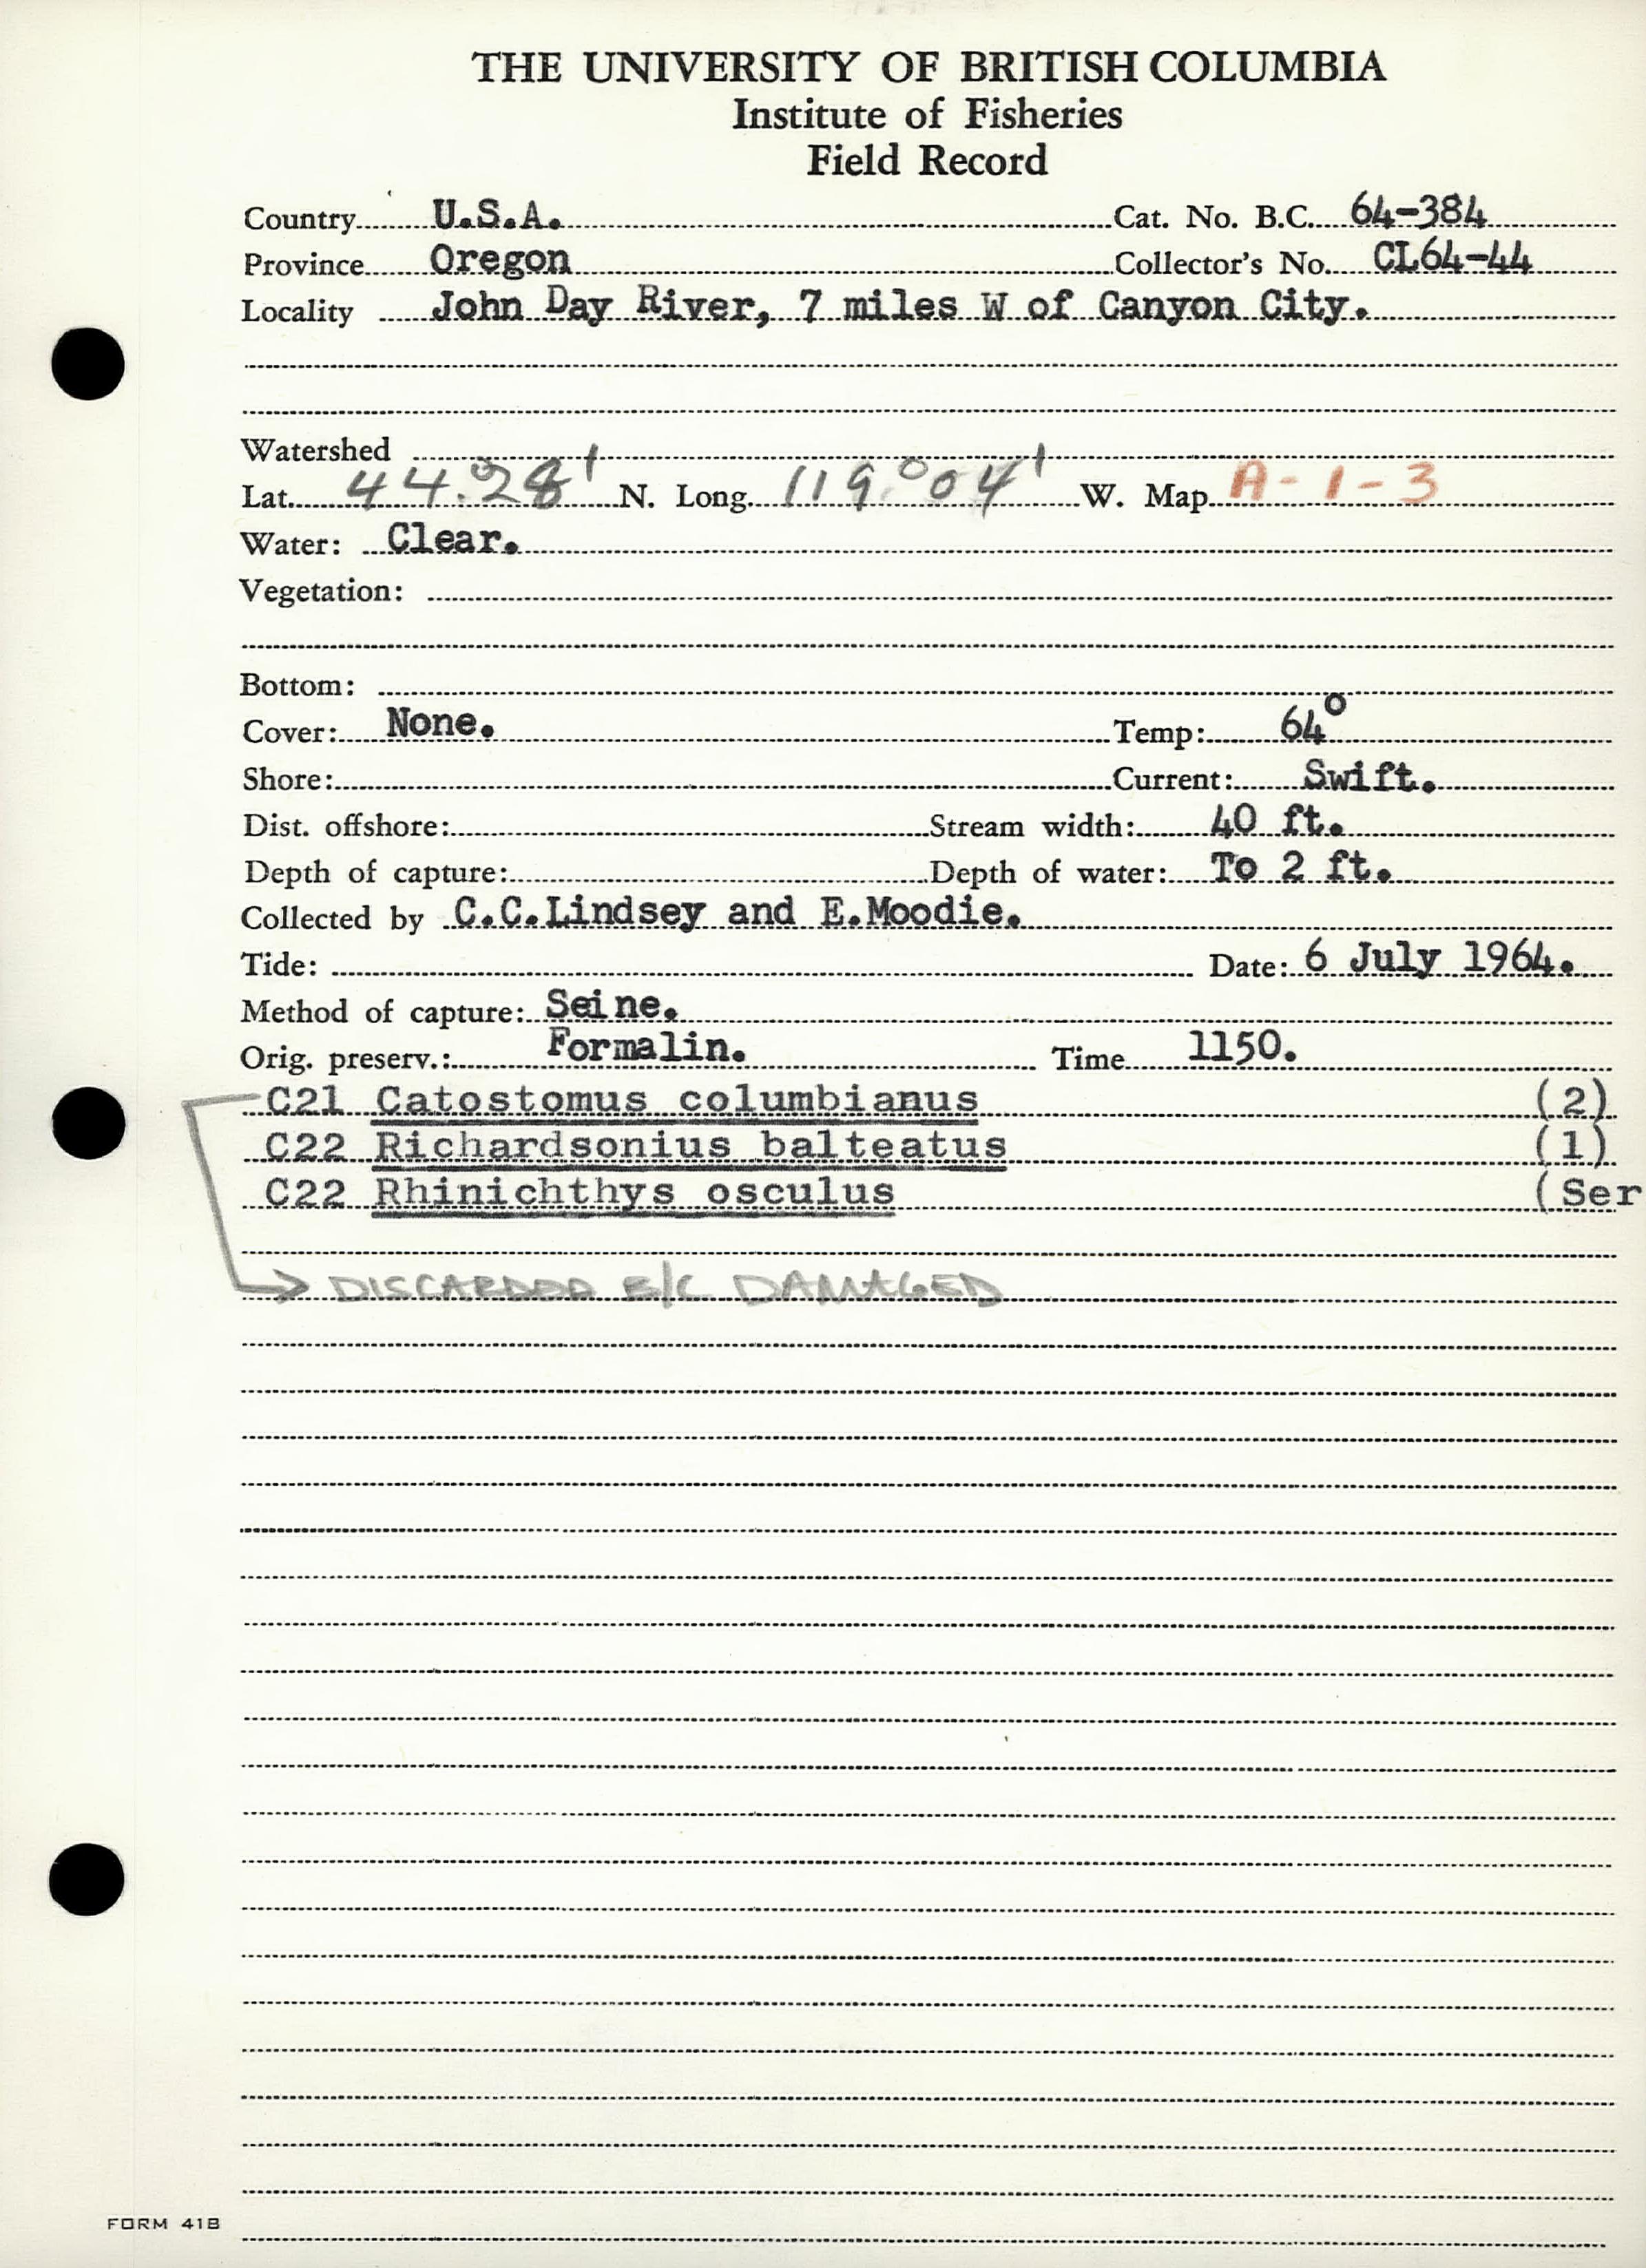 THE UNIVERSITY OF BRITISH COLUMBIA
Institute of Fisheries
Field Record
Country U.S.A. Cat. No. B.C. 64-384
Province Oregon Collector's No. CL64-44
Locality John Day River, 7 miles W of Canyon City.
Watershed
Lat. 44°28' N. Long. 119°04' W. Map A-1-3
Water: Clear.
Vegetation:
Bottom:
Cover: None. Temp: 64°
Shore: Current: Swift.
Dist. offshore: Stream width: 40 ft.
Depth of capture: Depth of water: To 2 ft.
Collected by C.C.Lindsey and E.Moodie.
Tide: Date: 6 July 1964.
Method of capture: Seine.
Orig. preserv.: Formalin. Time 1150.
C21 Catostomus columbianus (2)
C22 Richardsonius balteatus (1)
C22 Rhinichthys osculus (Ser
→ DISCARDED B/C DAMAGED
FORM 41B